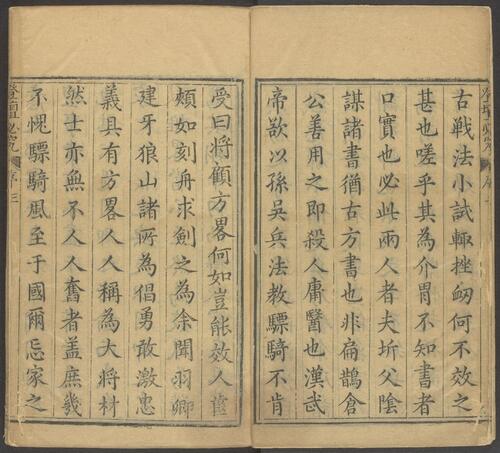 古戰法小試輙挫衂何不效之
甚也嗟乎其為介冑不知書者
口實也必此兩人者夫圻父陰
謀諸書猶古方書也非扁鵲倉
公善用之即殺人庸醫也漢武
帝欲以孫吳兵法教驃騎不肯
受曰將顧方畧何如豈能效人
頰如刻舟求劍之為余聞羽卿
建牙狼山諸所為倡勇敢激忠
義具有方畧人人稱為大將材
然士亦無不人人奮者蓋庶幾
不愧驃騎風至于國爾忘家之
序三